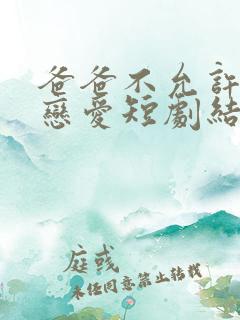 爸爸不允許
戀愛短劇結
庭彧
未經同意禁止轉載